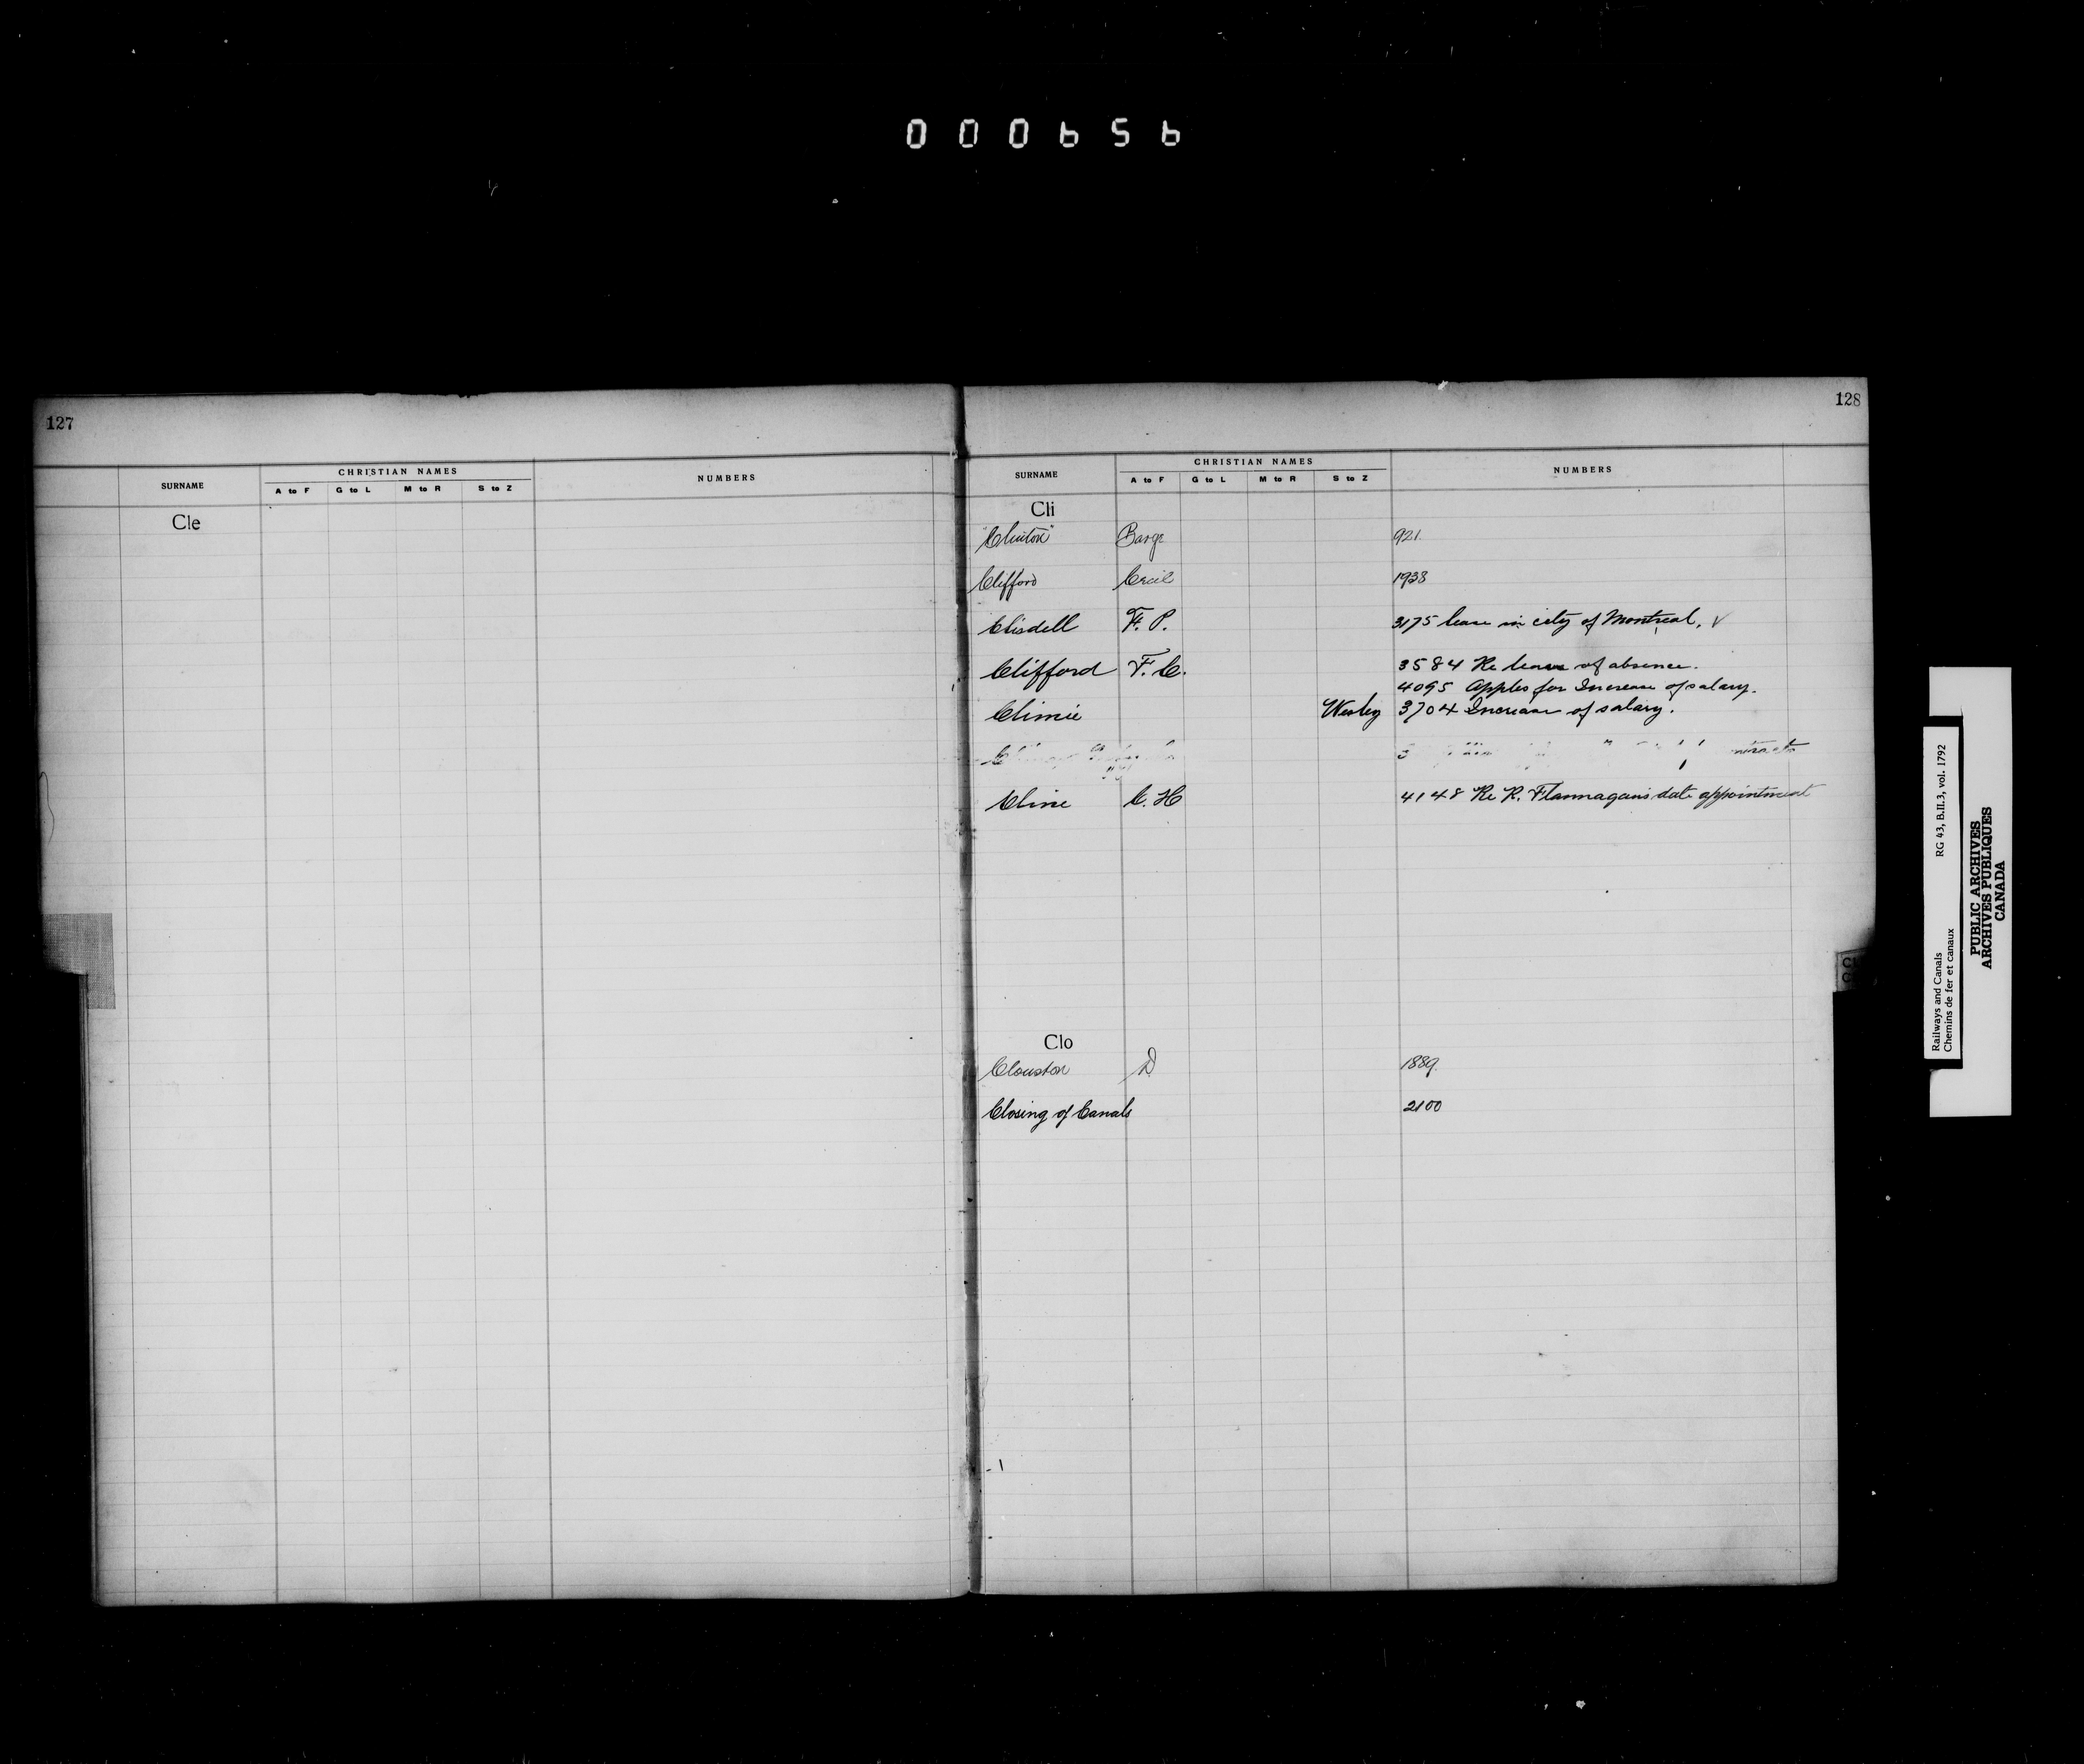 000656
127
SURNAME CHRISTIAN NAMES NUMBERS
A to F G to L M to R S to Z
Cle
128
SURNAME CHRISTIAN NAMES NUMBERS
A to F G to L M to R S to Z
Cli
"Clinton" Barge 921
Clifford Cecil 1938
Clisdell F. P. 3175 lease in city of Montreal. ✓
Clifford F. C. 3584 Re leave of absence.
4095 Apples for Increase of salary.
Climie Wesley 3704 Increase of salary.
3
Cline C. H 4148 Re R. Flannagan's date appointment
Clo
Clouston D 1889.
Closing of Canals 2100
Railways and Canals RG 43, B.II.3, vol. 1792
Chemins de fer et canaux
PUBLIC ARCHIVES
ARCHIVES PUBLIQUES
CANADA